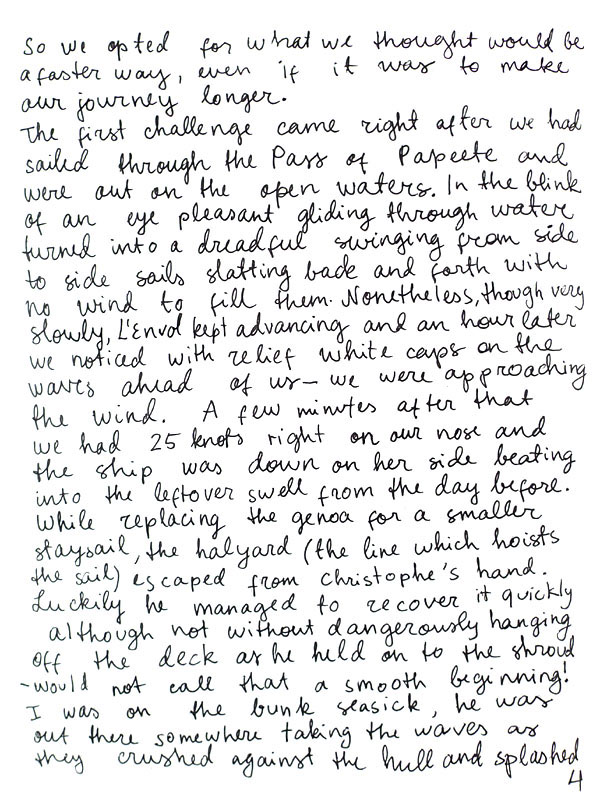 So we opted for what we thought would be
a faster way, even if it was to make
our journey longer.
The first challenge came right after we had
sailed through the Pass of Papeete and
were out on the open waters. In the blink
of an eye pleasant gliding through water
turned into a dreadful swinging from side
to side sails slatting back and forth with
no wind to fill them. Nonetheless, though very
slowly, L'Envol kept advancing and an hour later
we noticed with relief white caps on the
waves ahead of us – we were approaching
the wind. A few minutes after that
we had 25 knots right on our nose and
the ship was down on her side beating
into the leftover swell from the day before.
While replacing the genoa for a smaller
staysail, the halyard (the line which hoists
the sail) escaped from Christophe's hand.
Luckily he managed to recover it quickly
although not without dangerously hanging
off the deck as he held on to the shroud
- would not call that a smooth beginning!
I was on the bunk seasick, he was
out there somewhere taking the waves as
they crushed against the hull and splashed
4